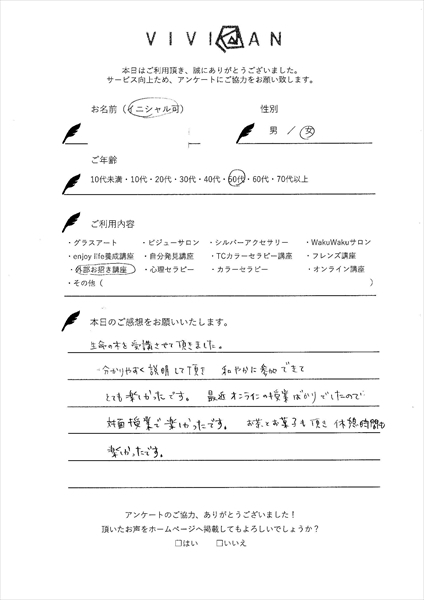 VIVIAN
本日はご利用頂き、誠にありがとうございました。
サービス向上ため、アンケートにご協力をお願い致します。
お名前（イニシャル可） 性別
男 ／ 女
ご年齢
10代未満・10代・20代・30代・40代・50代・60代・70代以上
ご利用内容
・グラスアート ・ビジューサロン ・シルバーアクセサリー ・WakuWakuサロン
・enjoy life養成講座 ・自分発見講座 ・TCカラーセラピー講座 ・フレンズ講座
・外部お招き講座 ・心理セラピー ・カラーセラピー ・オンライン講座
・その他（ ）
本日のご感想をお願いいたします。
生命の木を受講させて頂きました。
分かりやすく説明して頂き 和やかに参加できて
とても楽しかったです。 最近オンラインの授業ばかりでしたので
対面授業で楽しかったです。 お茶とお菓子も頂き休憩時間も
楽しかったです。
アンケートのご協力、ありがとうございました！
頂いたお声をホームページへ掲載してもよろしいでしょうか？
□はい □いいえ